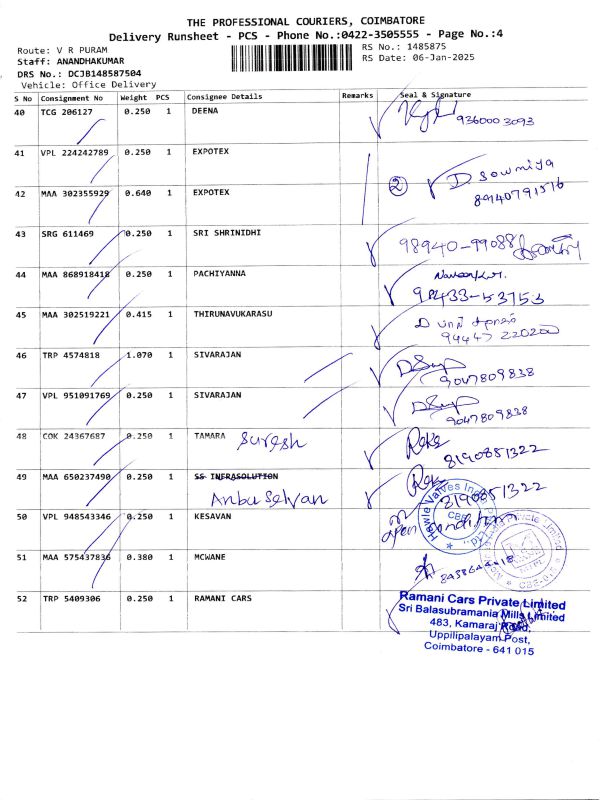 THE PROFESSIONAL COURIERS, COIMBATORE
Delivery Runsheet - PCS - Phone No.:0422-3505555 - Page No.:4
Route: V R PURAM
RS No.: 1485875
Staff: ANANDHAKUMAR
RS Date: 06-Jan-2025
DRS No.: DCJB148587504
Vehicle: Office Delivery
S No Consignment No Weight PCS Consignee Details Remarks Seal & Signature
40 TCG 206127 0.250 1 DEENA
9360003093
41 VPL 224242789 0.250 1 EXPOTEX
2 D Sowmiya
42 MAA 302355929 0.640 1 EXPOTEX
43 SRG 611469 0.250 1 SRI SHRINIDHI
98940-99088
44 MAA 868918418 0.250 1 PACHIYANNA
45 MAA 302519221 0.415 1 THIRUNAVUKARASU
94447 220200
46 TRP 4574818 1.070 1 SIVARAJAN
9047809838
47 VPL 951091769 0.250 1 SIVARAJAN
9047809838
48 COK 24367687 0.250 1 TAMARA Suresh
8190851322
49 MAA 650237490 0.250 1 SS INFRASOLUTION
Anbu Selvan
8190851322
50 VPL 948543346 0.250 1 KESAVAN
Hawle Valves India Pvt. Ltd.
CBE
51 MAA 575437836 0.380 1 MCWANE
52 TRP 5409306 0.250 1 RAMANI CARS
Ramani Cars Private Limited
Sri Balasubramania Mills Limited
483, Kamaraj Road,
Uppilipalayam Post,
Coimbatore - 641 015